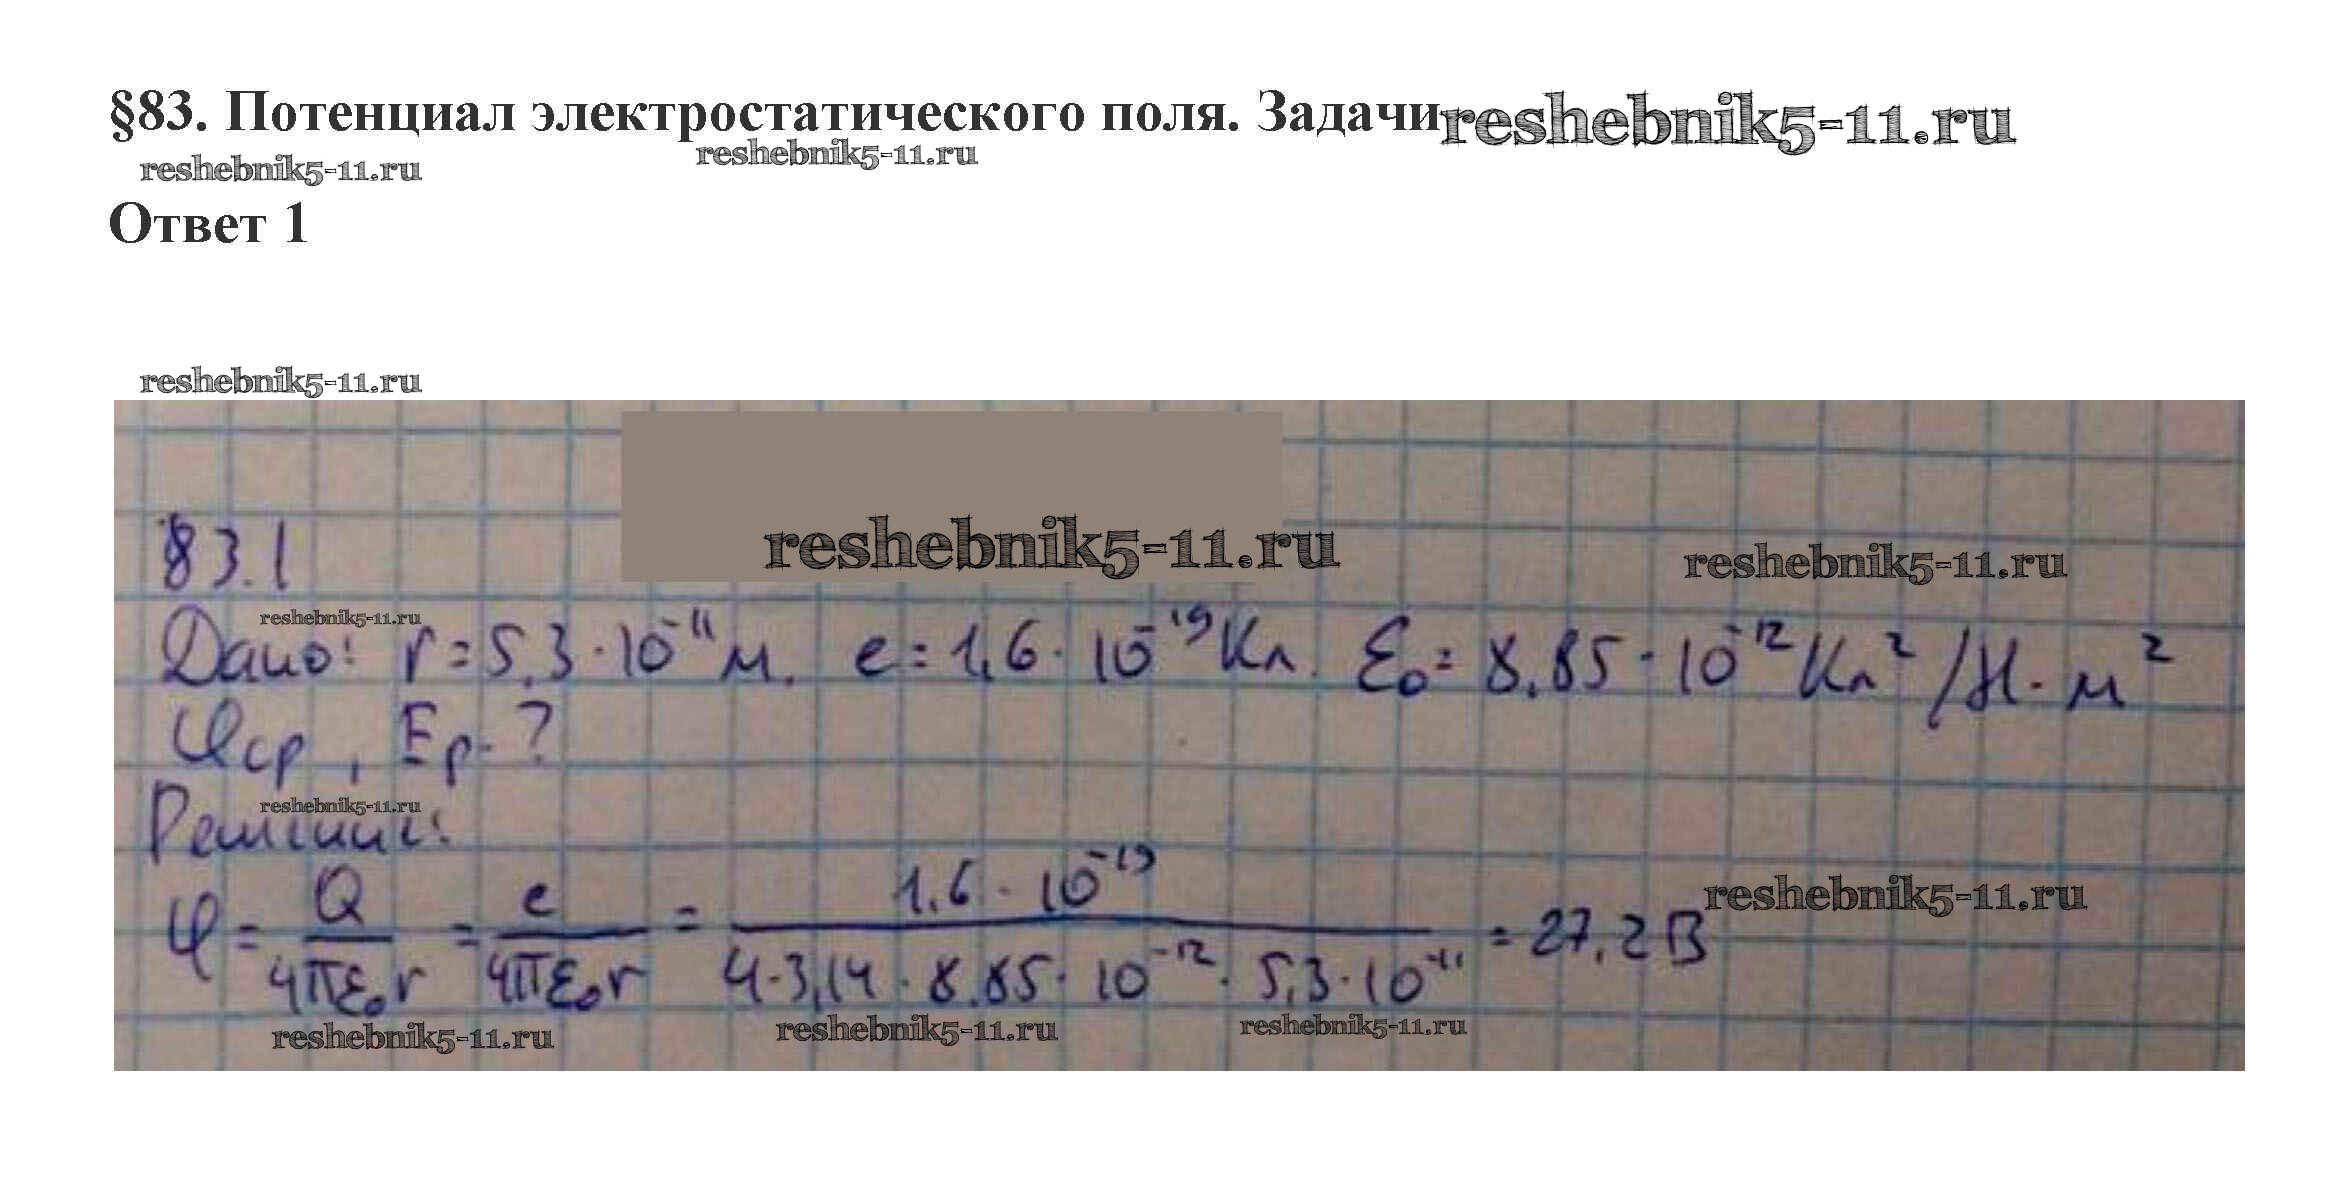 §83. Потенциал электростатического поля. Задачи reshebnik5-11.ru
reshebnik5-11.ru reshebnik5-11.ru
Ответ 1
reshebnik5-11.ru
reshebnik5-11.ru reshebnik5-11.ru
83.1
reshebnik5-11.ru
Дано: r = 5,3 · 10⁻¹¹ м. e = 1,6 · 10⁻¹⁹ Кл. ε₀ = 8,85 · 10⁻¹² Кл² / Н · м²
φср, Eр - ?
reshebnik5-11.ru
Решение:
φ = Q / 4πε₀r = e / 4πε₀r = 1,6 · 10⁻¹⁹ / 4 · 3,14 · 8,85 · 10⁻¹² · 5,3 · 10⁻¹¹ = 27,2 В
reshebnik5-11.ru
reshebnik5-11.ru reshebnik5-11.ru reshebnik5-11.ru